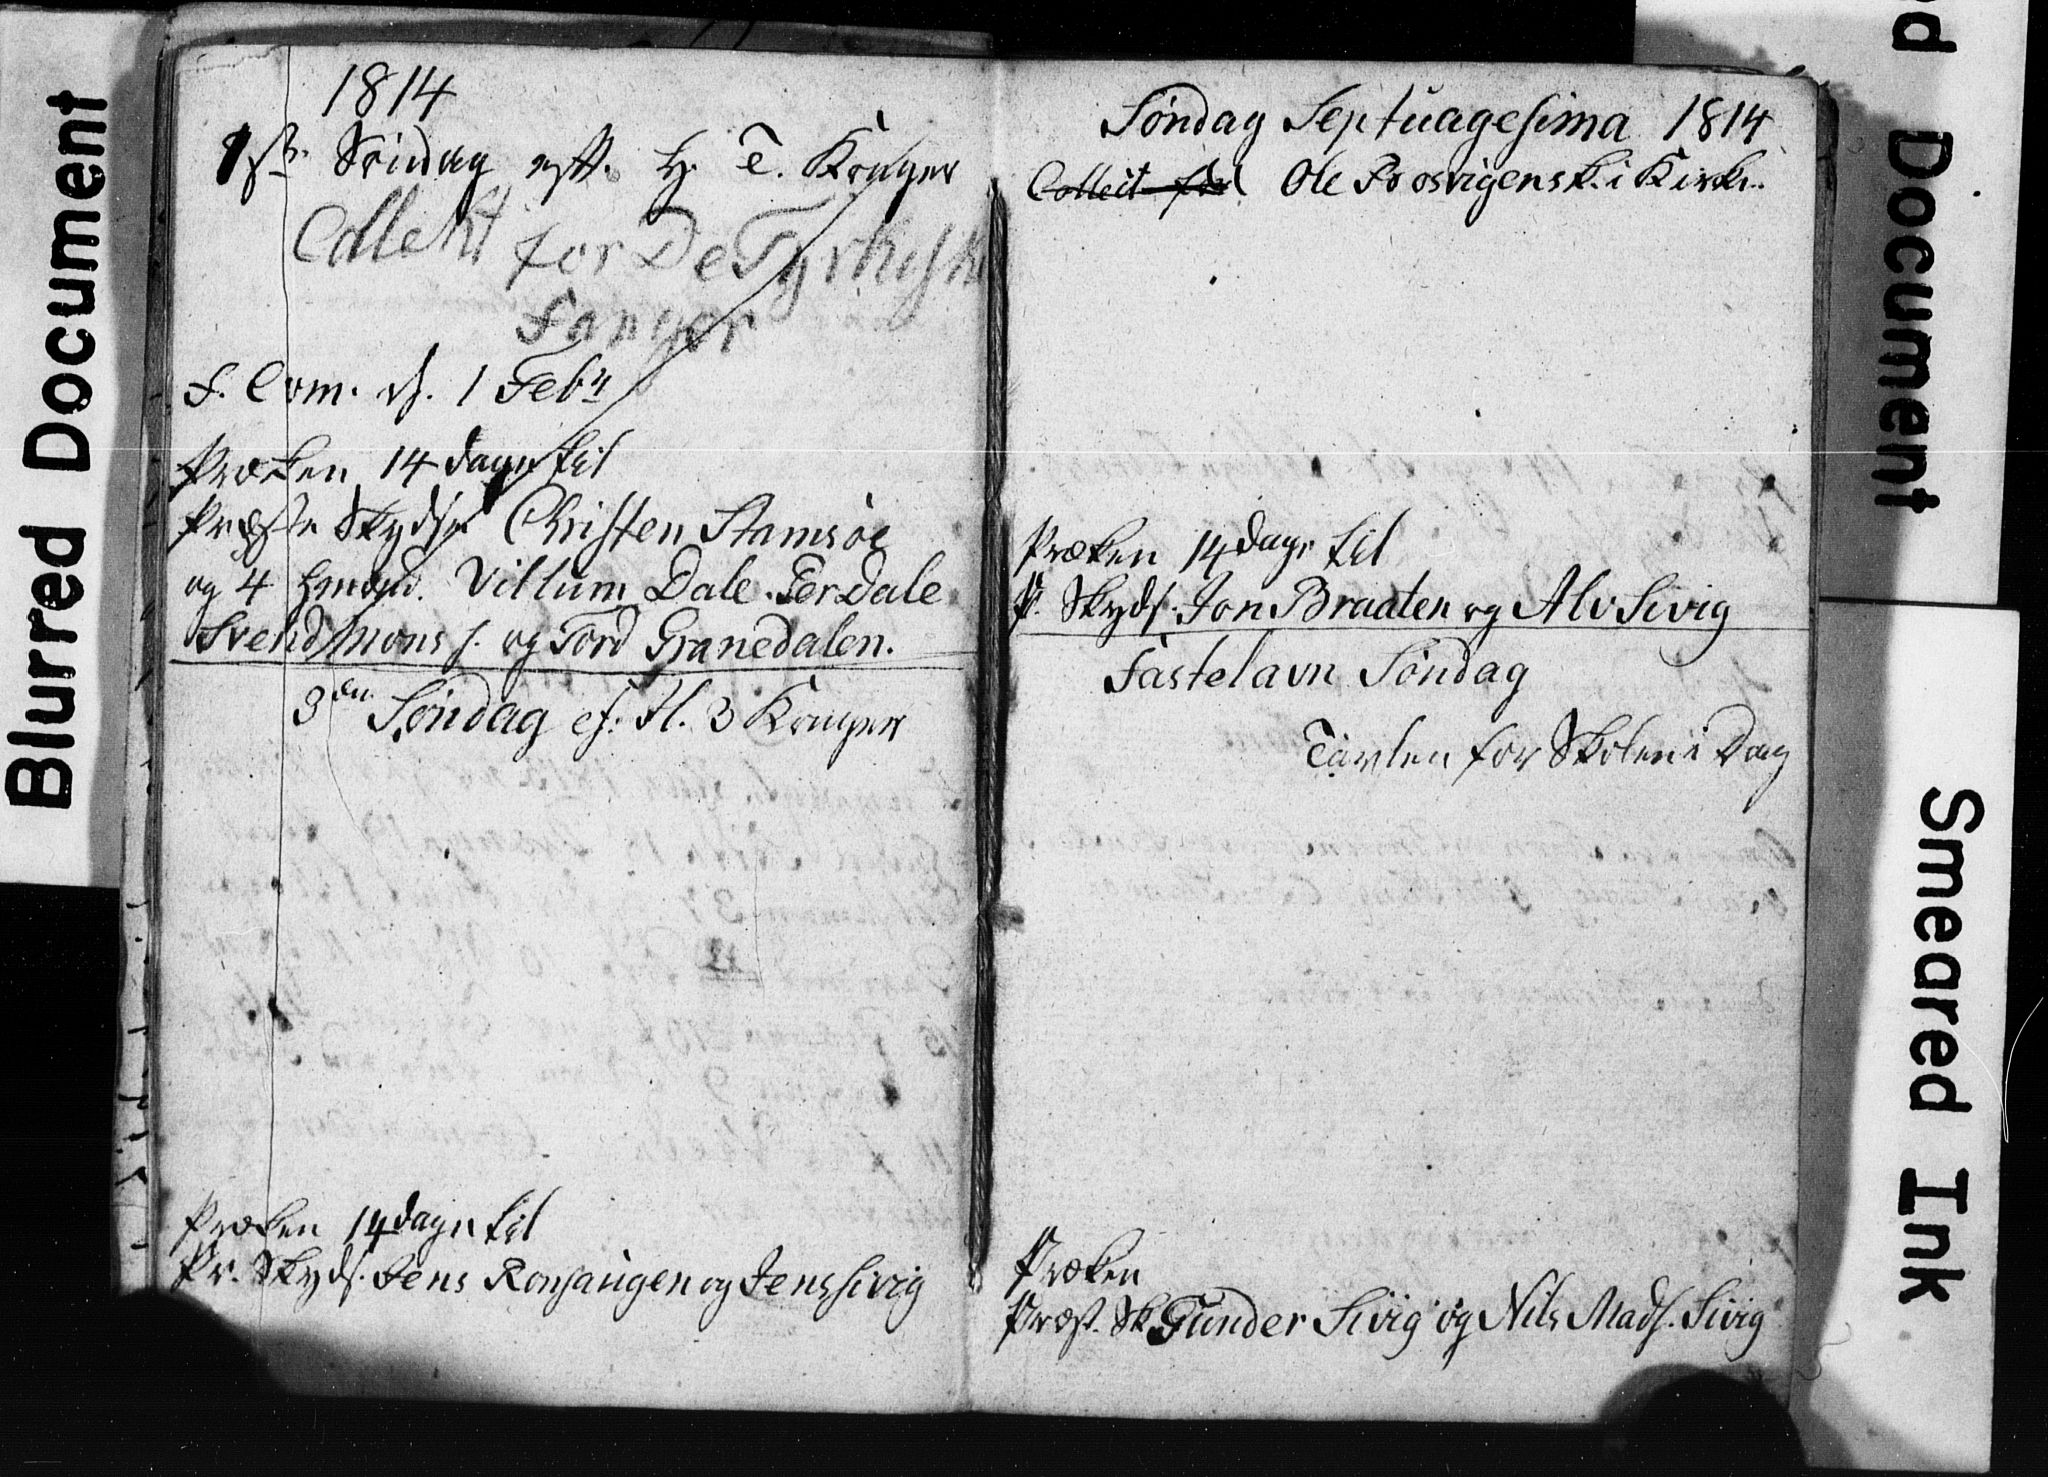 Blurred Document
1814
1ste Søndag eft. H. T. Konger
Collekt for De Tyrkiske
Fanger
F. Com. d. 1 Febr
Præken 14 dage til
Præste Skydse Christen Stamsøe
og 4 Hmænd. Villum Dale. Per Dale
Svend Mons s. og Tord Granedalen.
3den Søndag ef: H. 3 Konger
Præken 14 dage til
Pr. Skyds. Jens Ronhaugen og Jens Sivig
Søndag Septuagesima 1814
Collect for Ole Roosvigens K. i Kirke.
Præken 14 dage til
P. Skyds. Jon Braaten og Alv Sivig
Fastelavn Søndag
Tavlen for Skolen i Dag
Præken
Præst. Sk Gunder Sivig og Nils Mads. Sivig
d Document
Smeared Ink